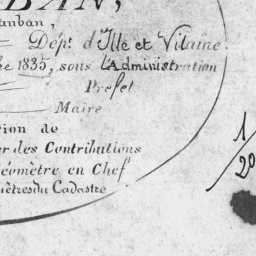 BAN,
auban,
Dép.t d'Ille et Vilaine.
1835, sous l'Administration
Prefet
Maire
ion de
er des Contributions
éomètre en Chef
mètres du Cadastre
1/20